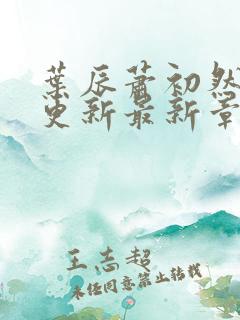 葉辰蕭初然
更新最新章
王志超
未经同意禁止转载